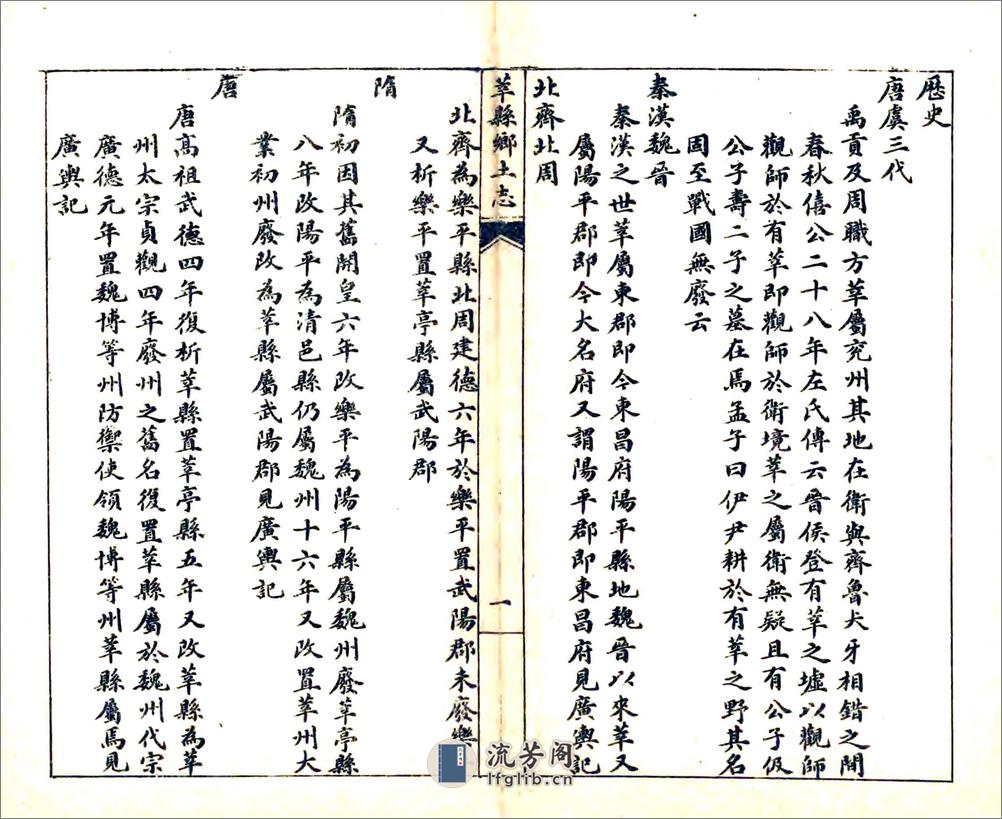 歷史
唐虞三代
禹貢及周職方莘屬兖州其地在衛與齊魯犬牙相錯之間
春秋僖公二十八年左氏傳云晉侯登有莘之墟以觀師
觀師於有莘即觀師於衛境莘之屬衛無疑且有公子伋
公子壽二子之墓在焉孟子曰伊尹耕於有莘之野其名
固至戰國無廢云
秦漢魏晉
秦漢之世莘屬東郡即今東昌府陽平縣地魏晉以來莘又
屬陽平郡即今大名府又謂陽平郡即東昌府見廣輿記
北齊北周
莘縣鄉土志
一
北齊為樂平縣北周建德六年於樂平置武陽郡未廢樂
又析樂平置莘亭縣屬武陽郡
隋
隋初因其舊開皇六年改樂平為陽平縣屬魏州廢莘亭縣
八年改陽平為清邑縣仍屬魏州十六年又改置莘州大
業初州廢改為莘縣屬武陽郡見廣輿記
唐
唐高祖武德四年復析莘縣置莘亭縣五年又改莘縣為莘
州太宗貞觀四年廢州之舊名復置莘縣屬於魏州代宗
廣德元年置魏博等州防禦使領魏博等州莘縣屬焉見
廣輿記
流芳阁
lfglib.cn